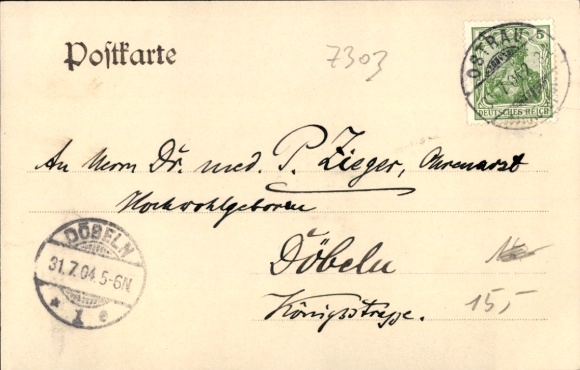 Postkarte
7303
OSTRAU
5
DEUTSCHES REICH
An Herrn Dr. med. P. Zieger, Ohrenarzt
Hochwohlgeboren
Döbeln
Königsstrasse.
15,-
DÖBELN
31.7.04.5-6N
* 1 e